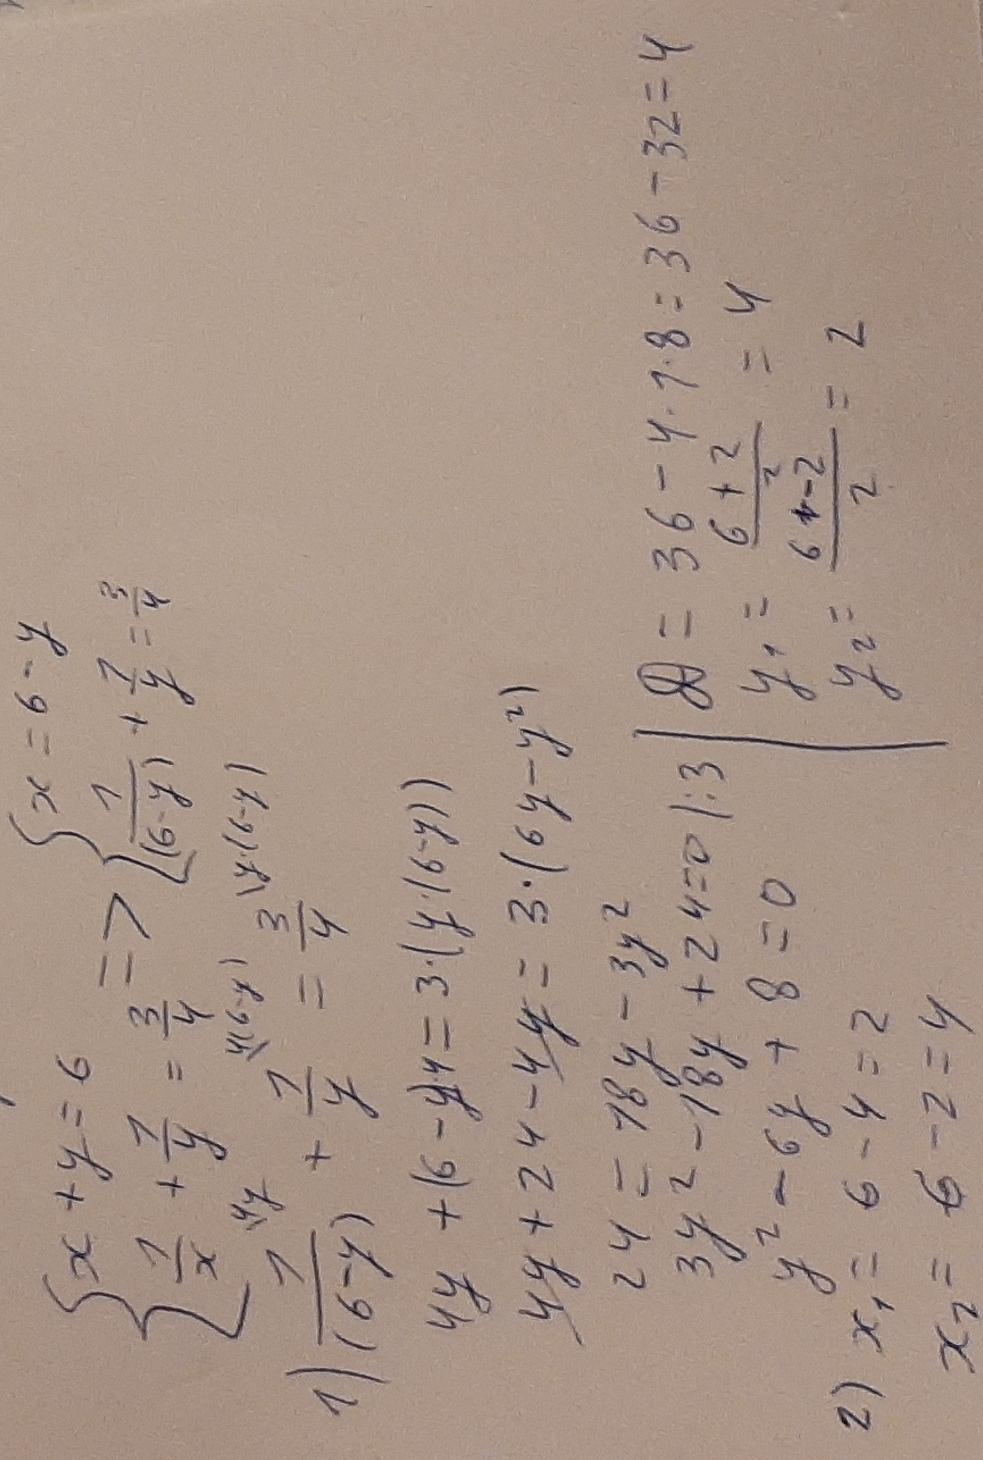 { x + y = 6 => { x = 6 - y
{ 1/x + 1/y = 3/4 { 1/(6-y) + 1/y = 3/4
1) 1/(6-y) \4y + 1/y \4(6-y) = 3/4 \y·(6-y)
4y + (6 - y)4 = 3·(y·(6-y))
4y + 24 - 4y = 3·(6y - y²)
24 = 18y - 3y²
3y² - 18y + 24 = 0 |:3
y² - 6y + 8 = 0
D = 36 - 4·1·8 = 36 - 32 = 4
y₁ = (6 + 2)/2 = 4
y₂ = (6 - 2)/2 = 2
2) x₁ = 6 - 4 = 2
x₂ = 6 - 2 = 4